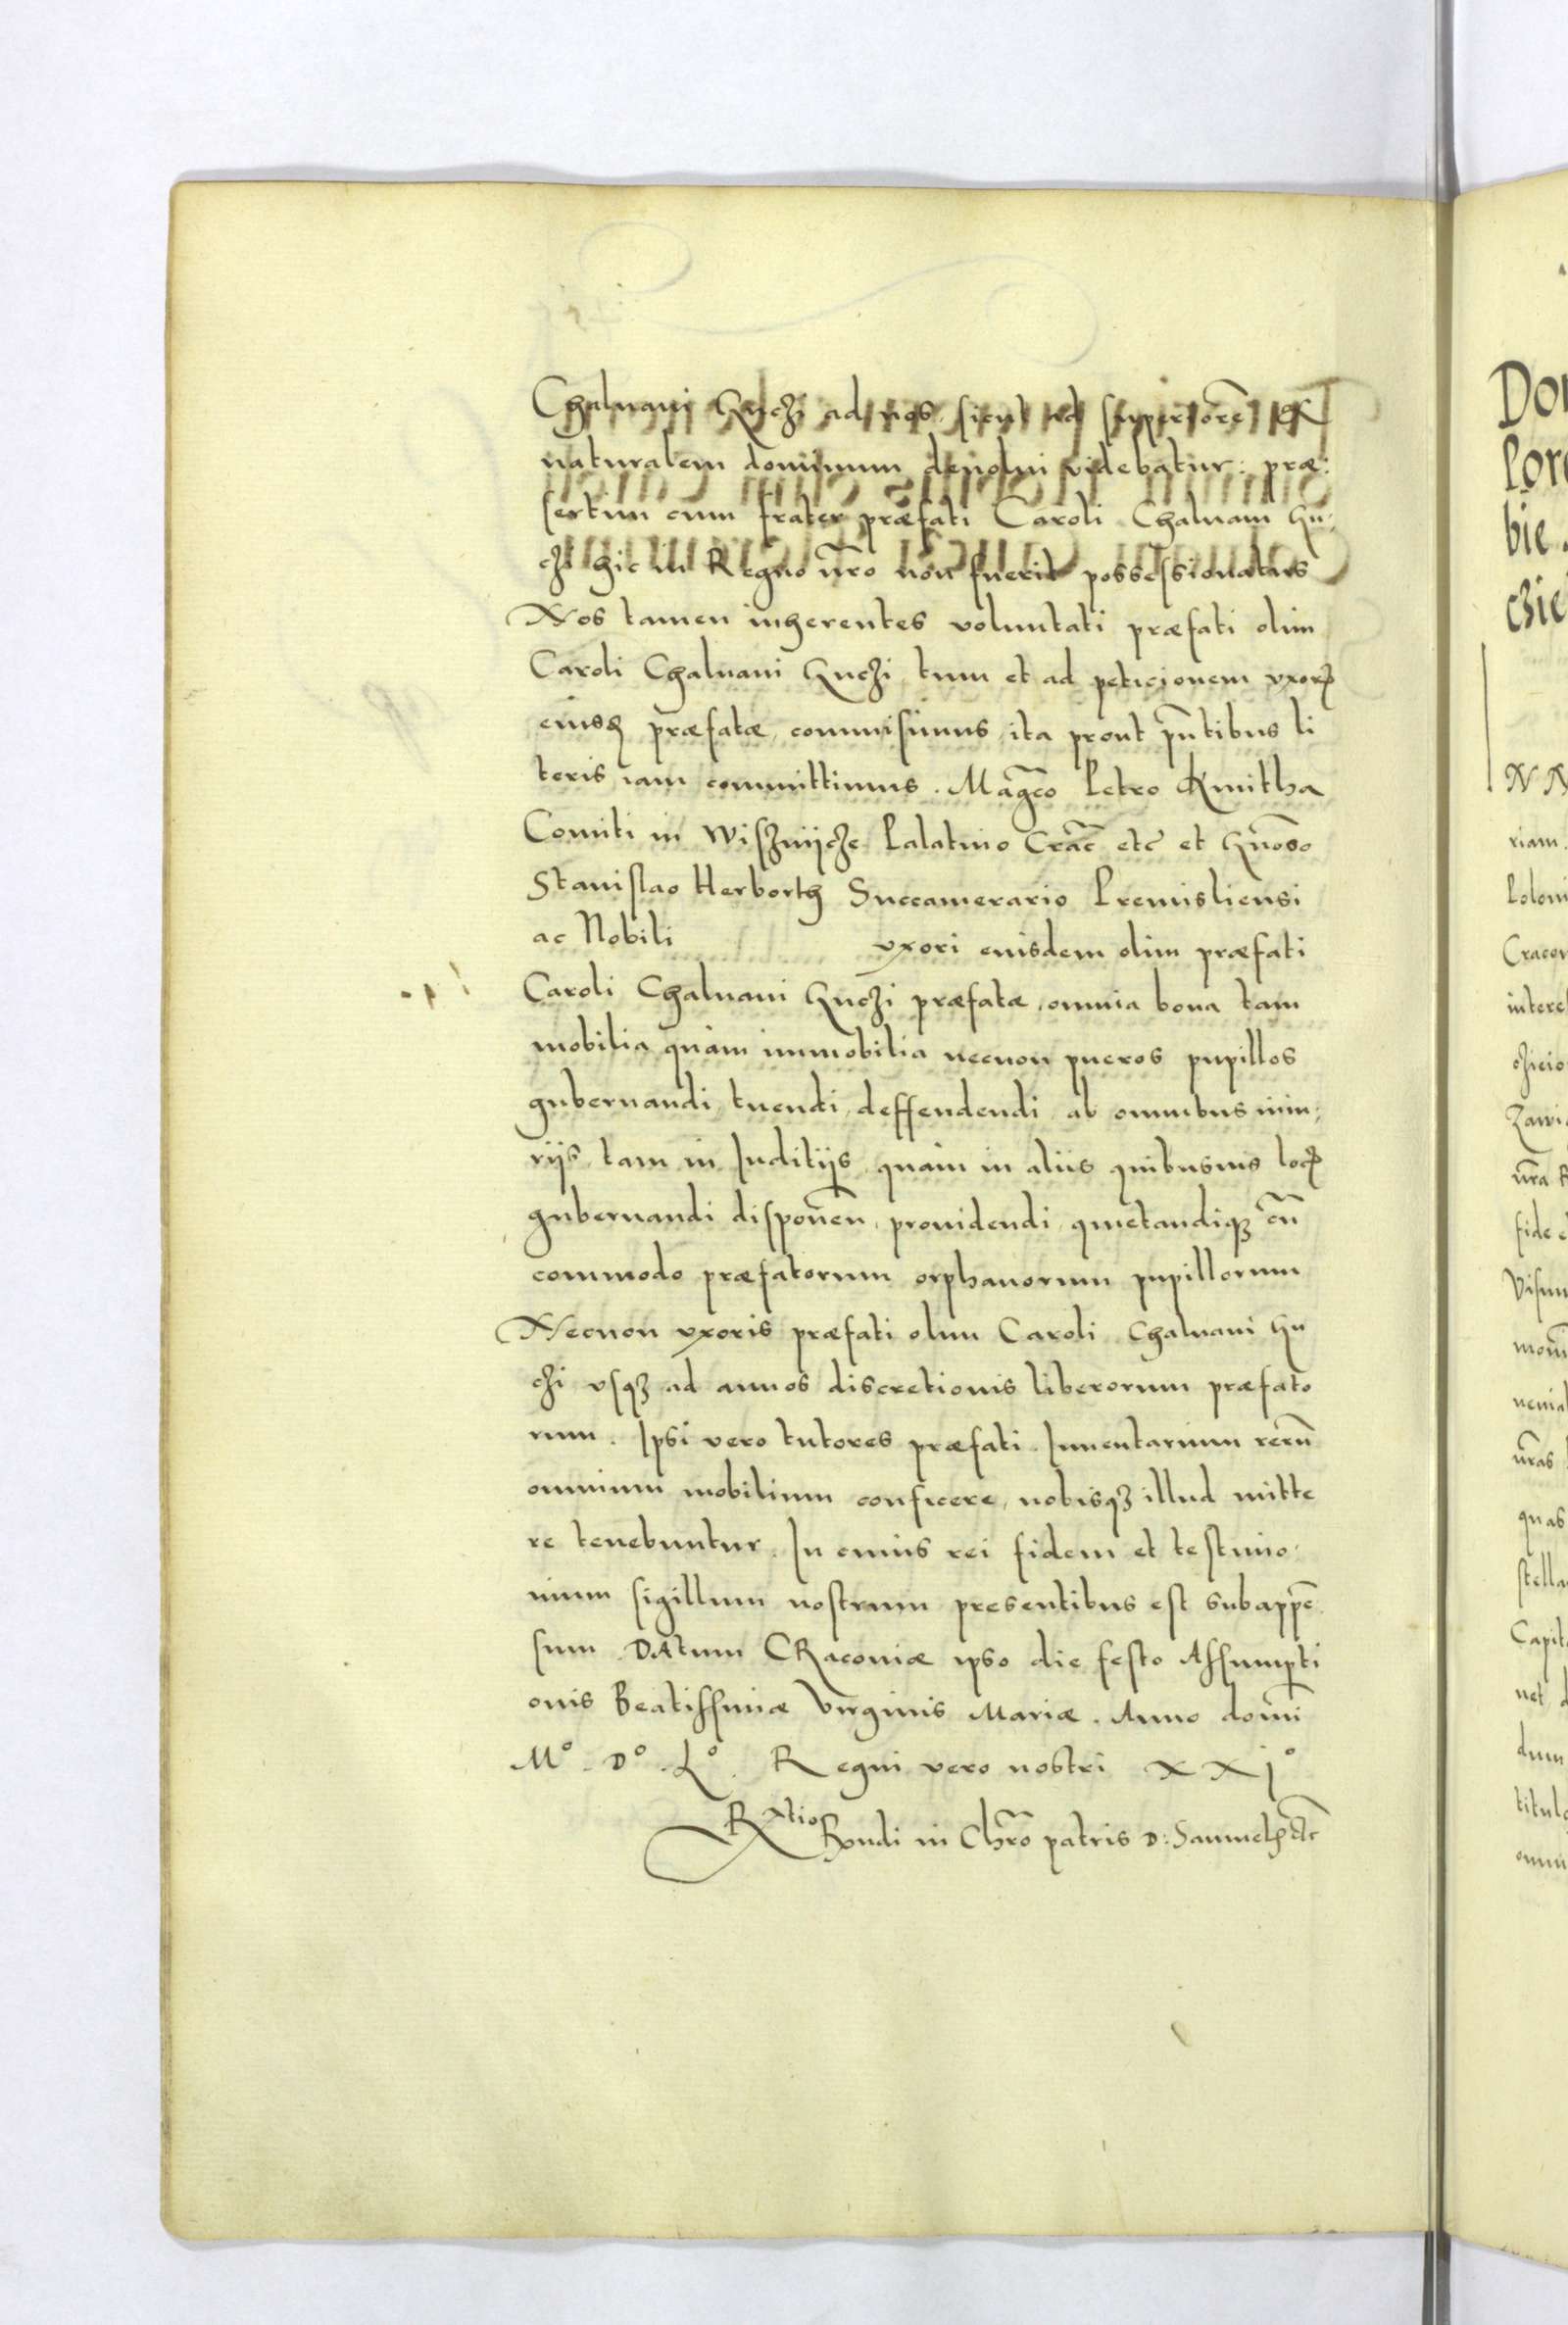 Chaluani Guczi ad nos sicut ad superiorē et
naturalem dominum deuolui videbatur: præ:
sertim cum frater præfati Caroli Chaluani Gu:
czi hic in Regno nr̃o non fuerit possessionatus
Nos tamen inherentes voluntati præfati olim
Caroli Chaluani Guczi tum et ad peticionem vxorꝭ
eiusꝗ præfatæ, commisimus, ita prout pñtibus li
teris iam committimus. Magc̃o Petro Kmitha
Comiti in Wisznijcze Palatino Crac̃ etc̃ et Gñoso
Stanislao Herborth Succamerario Premisliensi
ac Nobili vxori eiusdem olim præfati
Caroli Chaluani Guczi præfatæ, omnia bona tam
mobilia quàm immobilia necnon pueros pupillos
gubernandi, tuendi, deffendendi ab omnibus iniu:
rijs, tam in Juditijs quàm in aliis quibusuis locꝭ
gubernandi disponeñ, prouidendi, quietandiqꝫ cũ
commodo præfatorum orphanorum pupillorum
Necnon vxoris præfati olim Caroli Chaluani Gu
czi vsqꝫ ad annos discretionis liberorum præfato
rum. Ipsi vero tutores præfati Inuentarium rerũ
omnium mobilium conficere, nobisqꝫ illud mitte
re tenebuntur. In cuius rei fidem et testimo
nium sigillum nostrum presentibus est subappē
sum DAtum CRacouiæ ipso die festo Assumpti
onis Beatissimæ Virginis Mariæ. Anno domĩ
M° D° L° Regni vero nostri XXj°
RAtio Rũdi in Chr̃o patris D: Samuelis etc̃
Don
riam.
Poloni
Cracou
fide
titulo